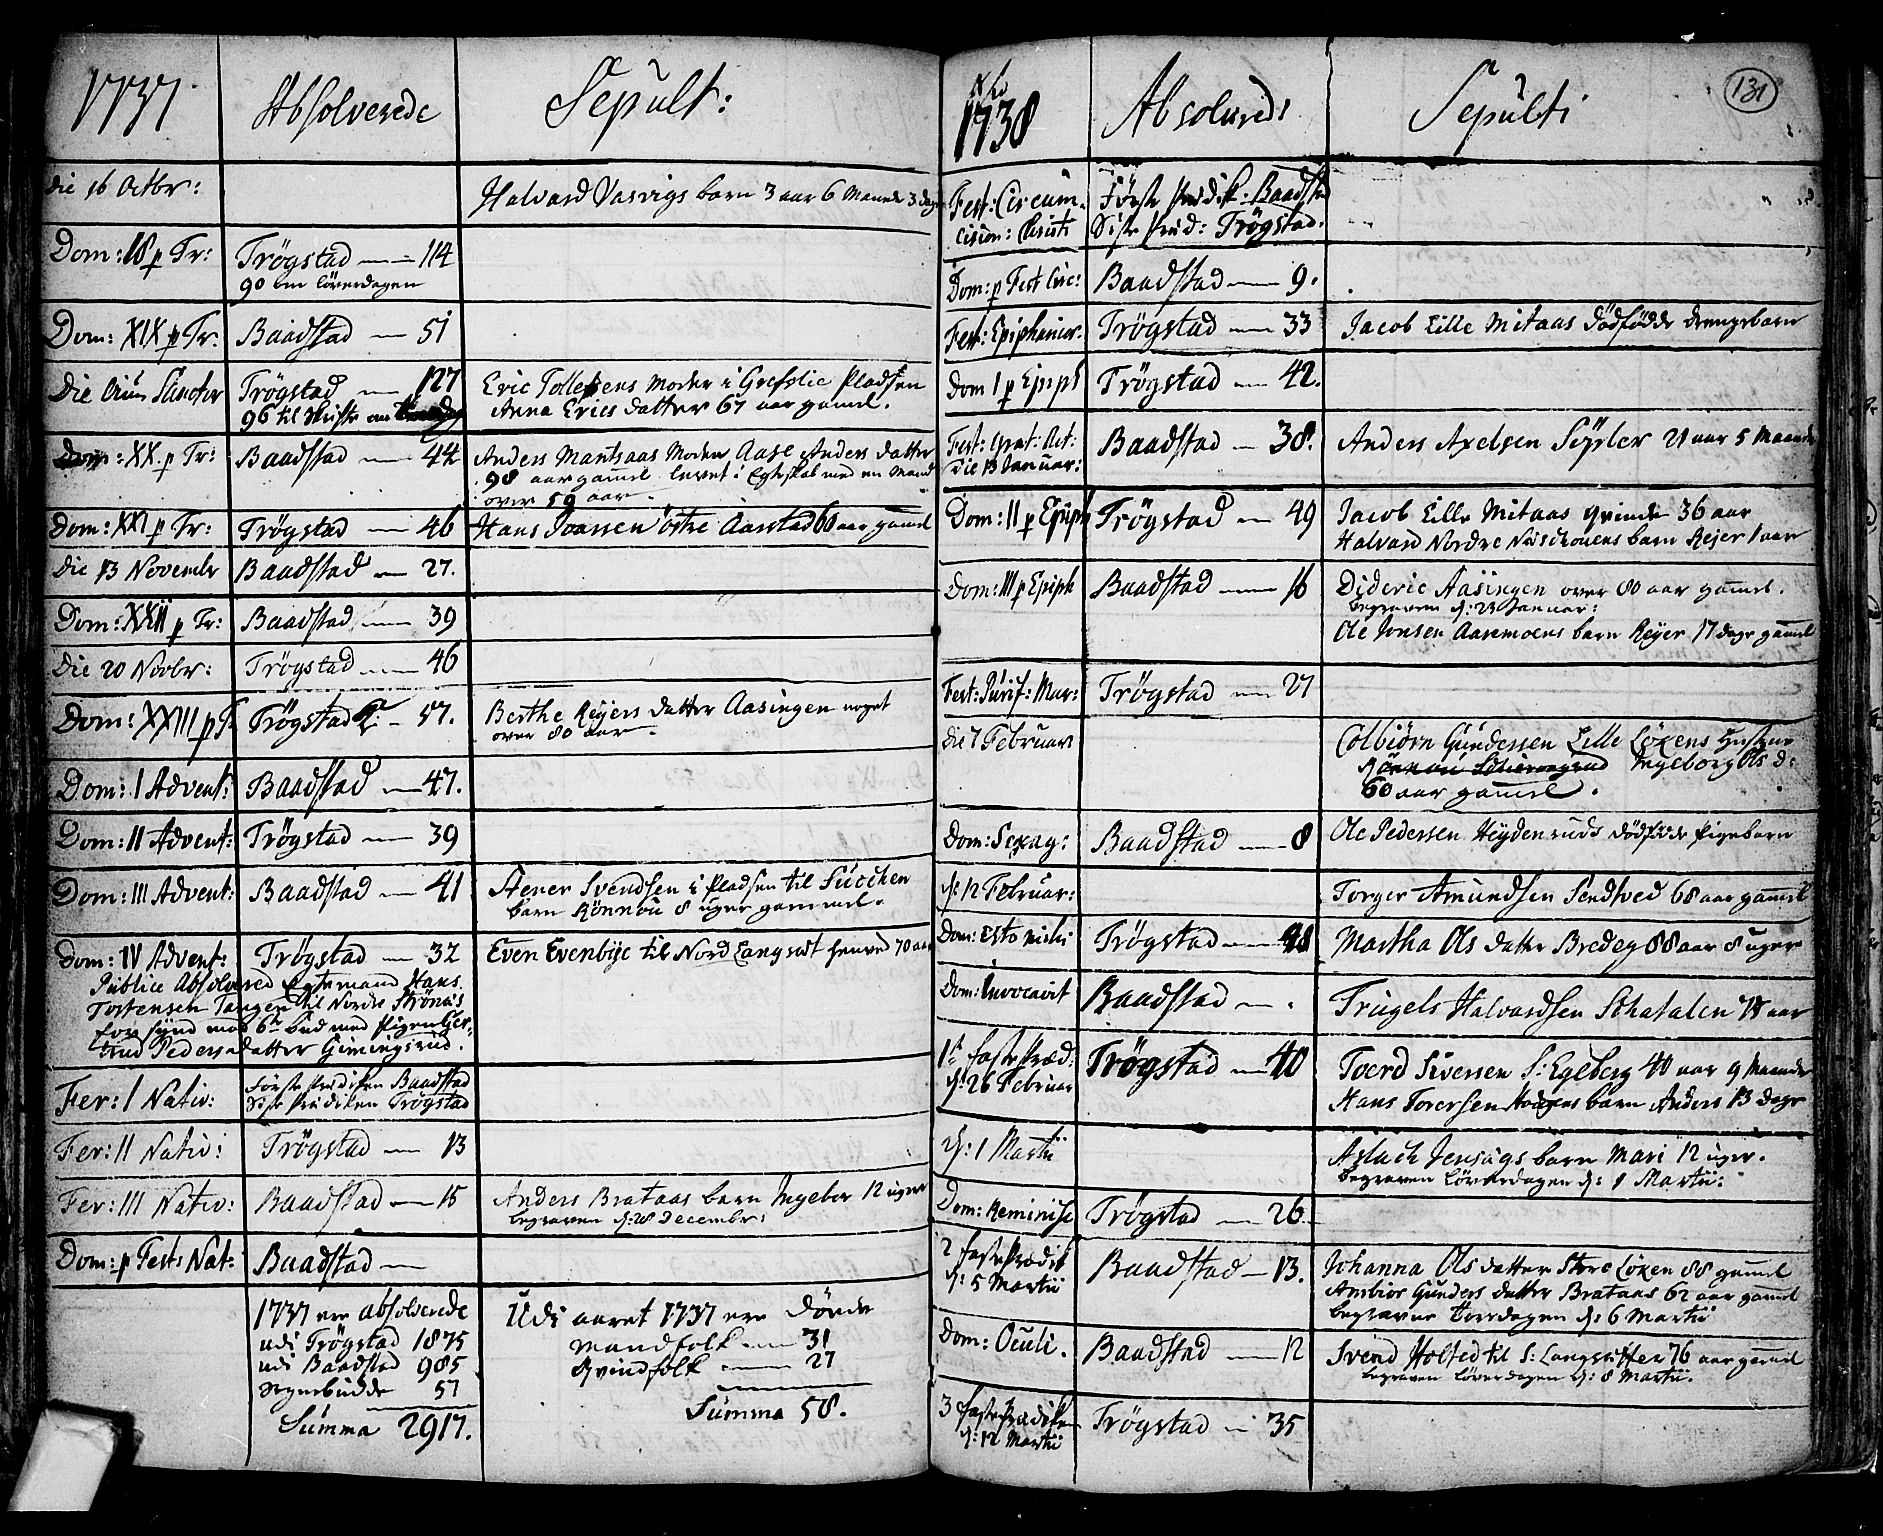 1737
Absolverede
Sepult:
Die 16 Octbr:
Halvard Vasvigs barn 3 aar 6 Maaneder 3 dage
Dom: 18 p Tr: Trögstad 114
90 om löverdagen
Dom: XIX p Tr. Baadstad 51
Die Oium Sanctor Trögstad 127
96 til skrifte om
Eric Tollefsens Moder i Grefslie Pladsen
Anna Erics datter 67 aar gamel.
Dom: XX p Tr: Baadstad 44
Anders Mantsaas Moder Aase Anders datter
98 aar gamel levet i Egteskab med en Mand
over 59 aar.
Dom: XXI p Tr: Trögstad 46
Hans Joassen östre Aarstad 60 aar gamel
Die 13 Novembr Baadstad 27.
Dom: XXII p Tr: Baadstad 39
Die 20 Novbr: Trögstad 46
Dom: XXIII p T. Trögstad K: 57.
Berthe Reyers datter Aasingen noget
over 80 aar.
Dom: I Advent: Baadstad 47.
Dom: II Advent: Trögstad 39
Dom: III Advent: Baadstad 41
Stener Svendsen i Pladsen til
barn Rönnou 8 uger gammel.
Dom: IV Advent: Trögstad 32
Even Evenbye til Nord Langsædt henved 70 aar
Publice Absolvered Egtemand Hans
Tostensen Tangen til Nordre Strönæs
for synd mod 6te bud med Pigen Ger-
trud Peders datter Gimingsrud.
Fer: I Nativ: Förste Prediken Baadstad
Siste Prediken Trögstad
Fer: II Nativ: Trögstad 13
Fer: III Nativ: Baadstad 15
Anders Brataas barn Ingebor 12 uger
begraven d: 28 Decembr:
Dom: p Fest: Nat: Baadstad
1737 ere absolverede
udi Trögstad 1875
udi Baadstad 985
Sognebudde 57
Summa 2917.
Udi aaret 1737 ere Döde
Mandfolk 31
Qvindfolk 27
Summa 58.
131
1738
Absolverede
Sepulti
Fest: Circum-
cision: Christi
Förste Predik: Baadstad
Siste Pred: Trögstad.
Dom: p Fest Circ: Baadstad 9.
Fest: Epiphanior. Trögstad 33
Jacob Lille Mitaas dödfödde drengebarn
Dom I p Epiph Trögstad 42.
Fest: Grat: Act:
Die 13 Januar:
Baadstad 38.
Anders Axelsen 21 aar 5 Maaneder
Dom: II p Epiph Trögstad 49
Jacob Lille Mitaas qvinde 36 aar
Halvard Nordre barn Reyer 1 aar
Dom: III p Epiph Baadstad 16
Dideric Aasingen over 80 aar gamel.
begraven d: 23 Januar:
Ole Jonsen Aasemoens barn Reyer 17 dage gamel
Fest: Purif: Mar: Trögstad 27
Die 7 Februar
Colbiörn Gundersen Lille Löxens Hustrue
Ingeborg Ols d:
60 aar gamel.
Dom: Sexag: Baadstad 8
Ole Pedersen Heydenruds dödfödde Pigebarn
d: 12 Februar:
Torger Amundsen Sendtved 68 aar gamel
Dom: Esto mihi Trögstad 48
Martha Ols datter Bredeg 88 aar 8 uger
Dom: Invocavit Baadstad
Trugels Halvardsen Schatalen 78 aar
1te faste Præd:
d: 26 Februar
Trögstad 40
Toerd Siversen S: Egeberg 40 aar 9 Maaneder
Hans Torersen barn Anders 13 dage
d: 1 Martii
Aslach Jensags barn Mari 12 uger.
begraven Löverdagen d: 1 Martii:
Dom: Reminisc Trögstad 26
2 faste Prædik
d: 5 Martii
Baadstad 13.
Johanna Ols datter Store Löxen 88 gamel
Ambior Gunders datter Brataas 62 aar gamel
begraven Torsdagen d: 6 Martii
Dom: Oculi. Baadstad 12
Svend Holsted til S: Langsetter 76 aar gamel
begraven Löverdagen d: 8 Martii.
3 faste Prædiken
d: 12 Martii
Trögstad 35